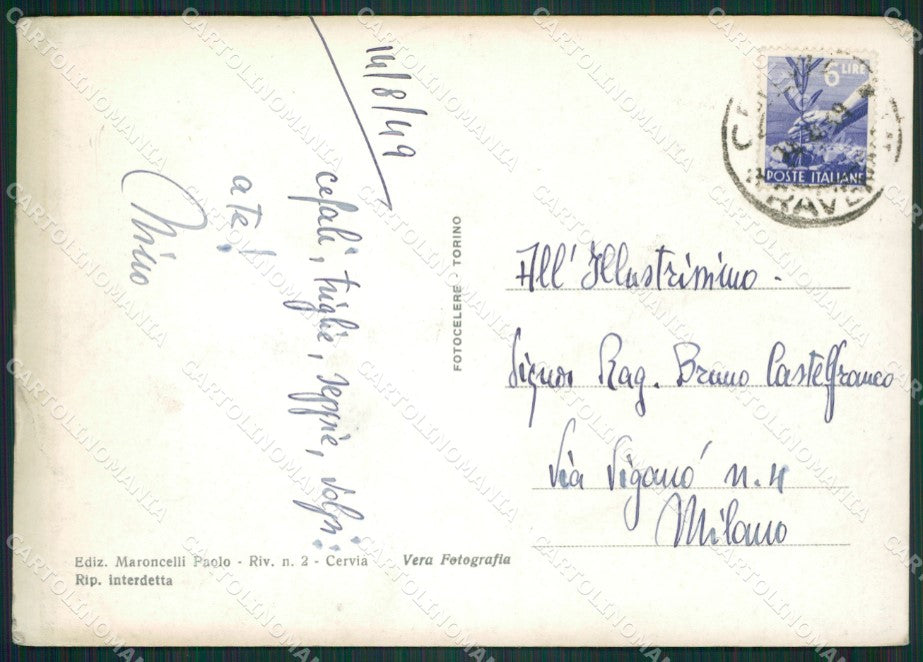 14/8/49
cefali, triglie, seppie, volgi:
ate!
Nino
FOTOCELERE - TORINO
6 LIRE
POSTE ITALIANE
RAVENNA
All' Illustrissimo -
Signor Rag. Bruno Castelfranco
Via Viganó n. 4
Milano
Ediz. Maroncelli Paolo - Riv. n. 2 - Cervia Vera Fotografia
Rip. interdetta
CARTOLINOMANIA